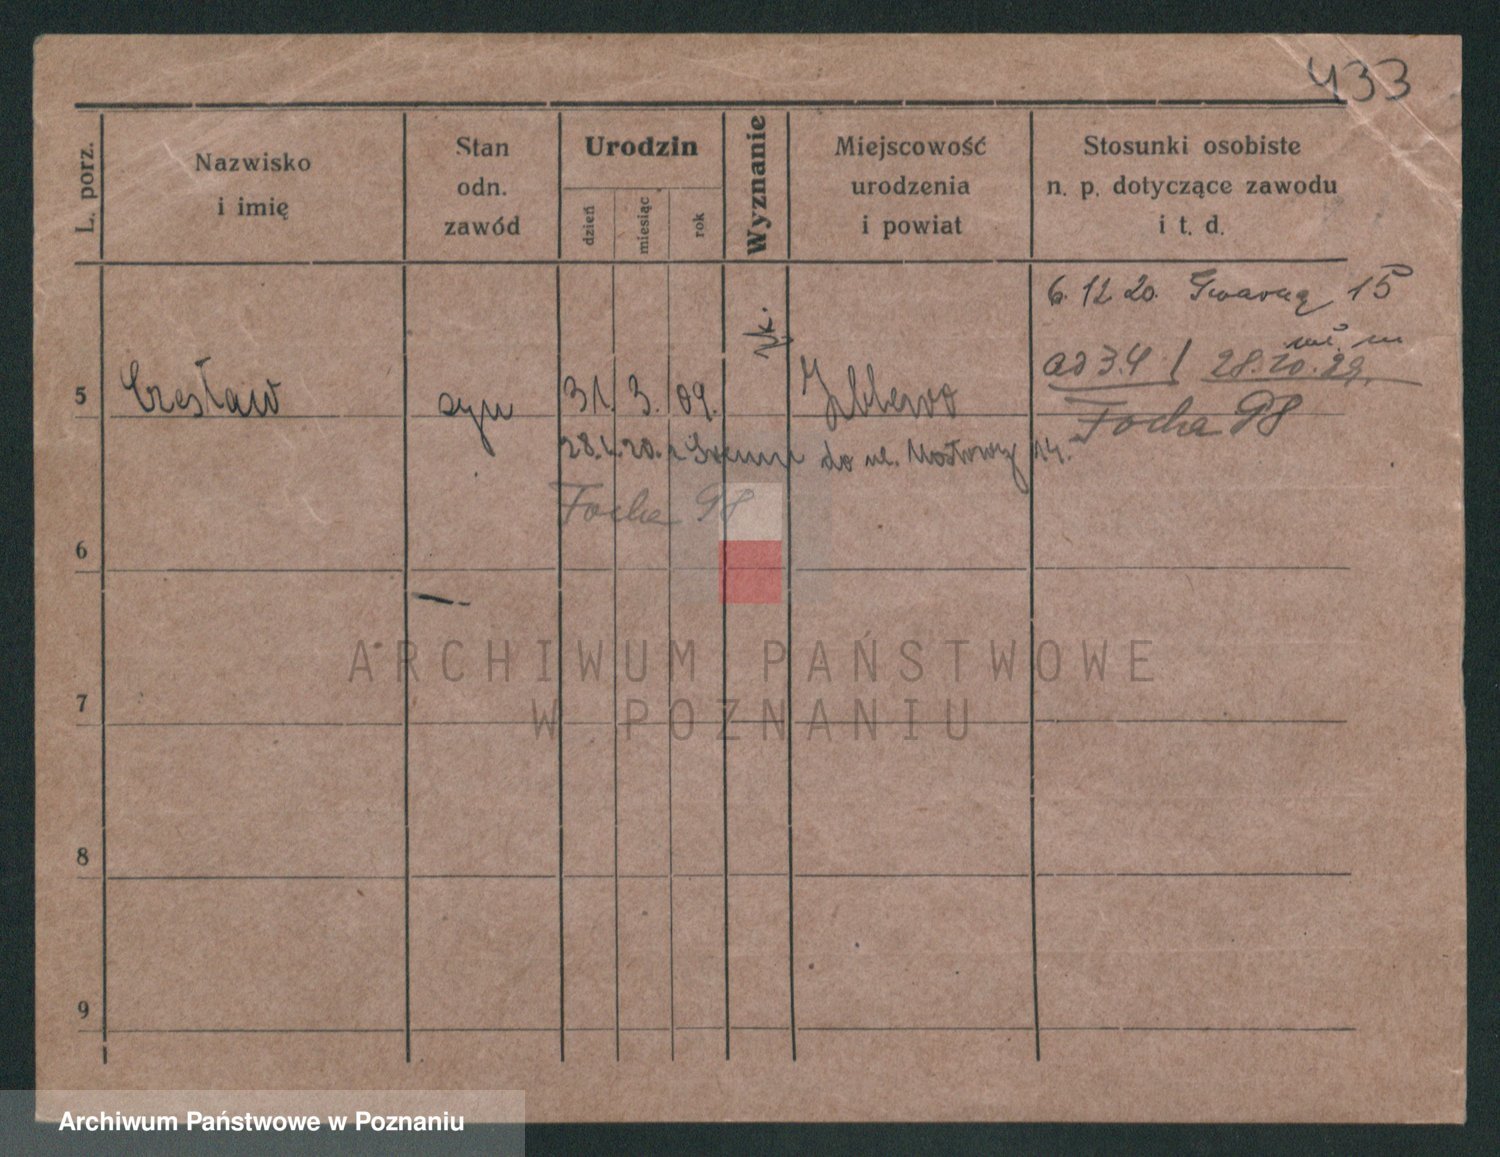 433
L. porz.
Nazwisko
i imię
Stan
odn.
zawód
Urodzin
dzień
miesiąc
rok
Wyznanie
Miejscowość
urodzenia
i powiat
Stosunki osobiste
n. p. dotyczące zawodu
i t. d.
6. 12 20. Gwarną 15
5 Czesław syn 31. 3. 09. rk. Iłłowo
ad 3.4 / 28.10.29.
Focha 98
28. 20. do ul. Mostowej 14.
Focha 98
6
7
8
9
ARCHIWUM PAŃSTWOWE
W POZNANIU
Archiwum Państwowe w Poznaniu